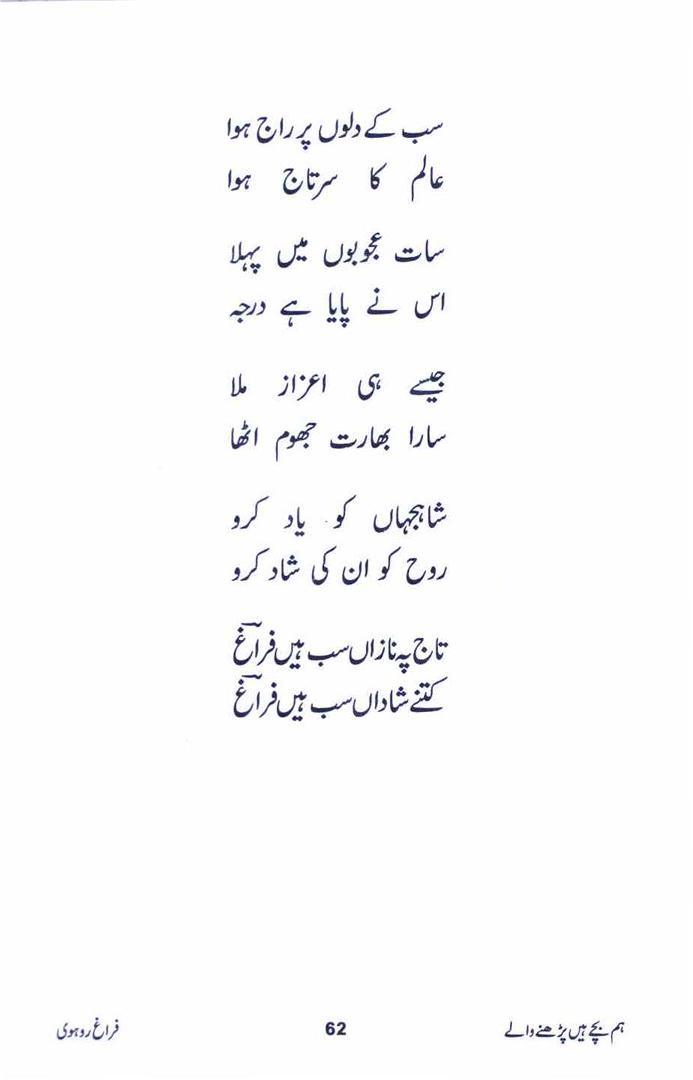 سب کے دلوں پر راج ہوا
عالم کا سرتاج ہوا
سات عجوبوں میں پہلا
اس نے پایا ہے درجہ
جیسے ہی اعزاز ملا
سارا بھارت جھوم اٹھا
شاہجہاں کو یاد کرو
روح کو ان کی شاد کرو
تاج پہ نازاں سب ہیں فراؔغ
کتنے شاداں سب ہیں فراؔغ
ہم بچے ہیں پڑھنے والے 62 فراغ روہوی